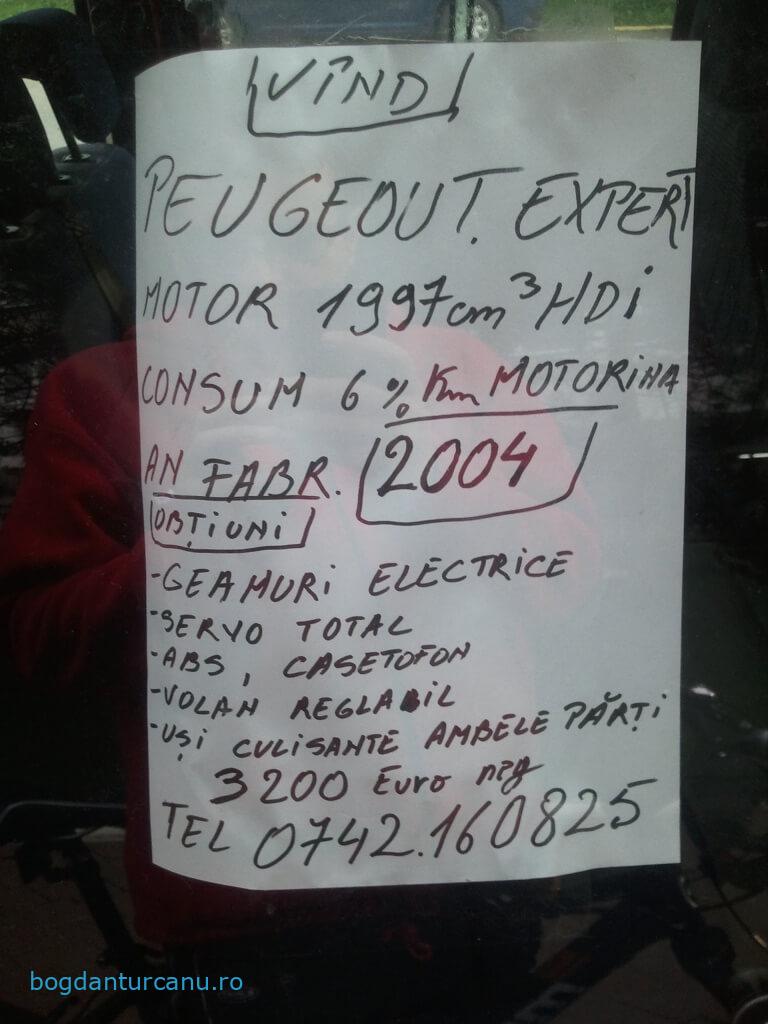 VÎND
PEUGEOUT. EXPERT
MOTOR 1997cm³ HDi
CONSUM 6% Km MOTORINA
AN FABR. 2004
OBȚIUNI
-GEAMURI ELECTRICE
-SERVO TOTAL
-ABS, CASETOFON
-VOLAN REGLABIL
-UȘI CULISANTE AMBELE PĂRȚI
3200 Euro neg
TEL 0742.160825
bogdanturcanu.ro